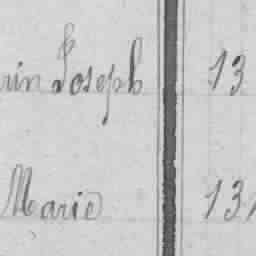 rin Joseph 13
Marie 13